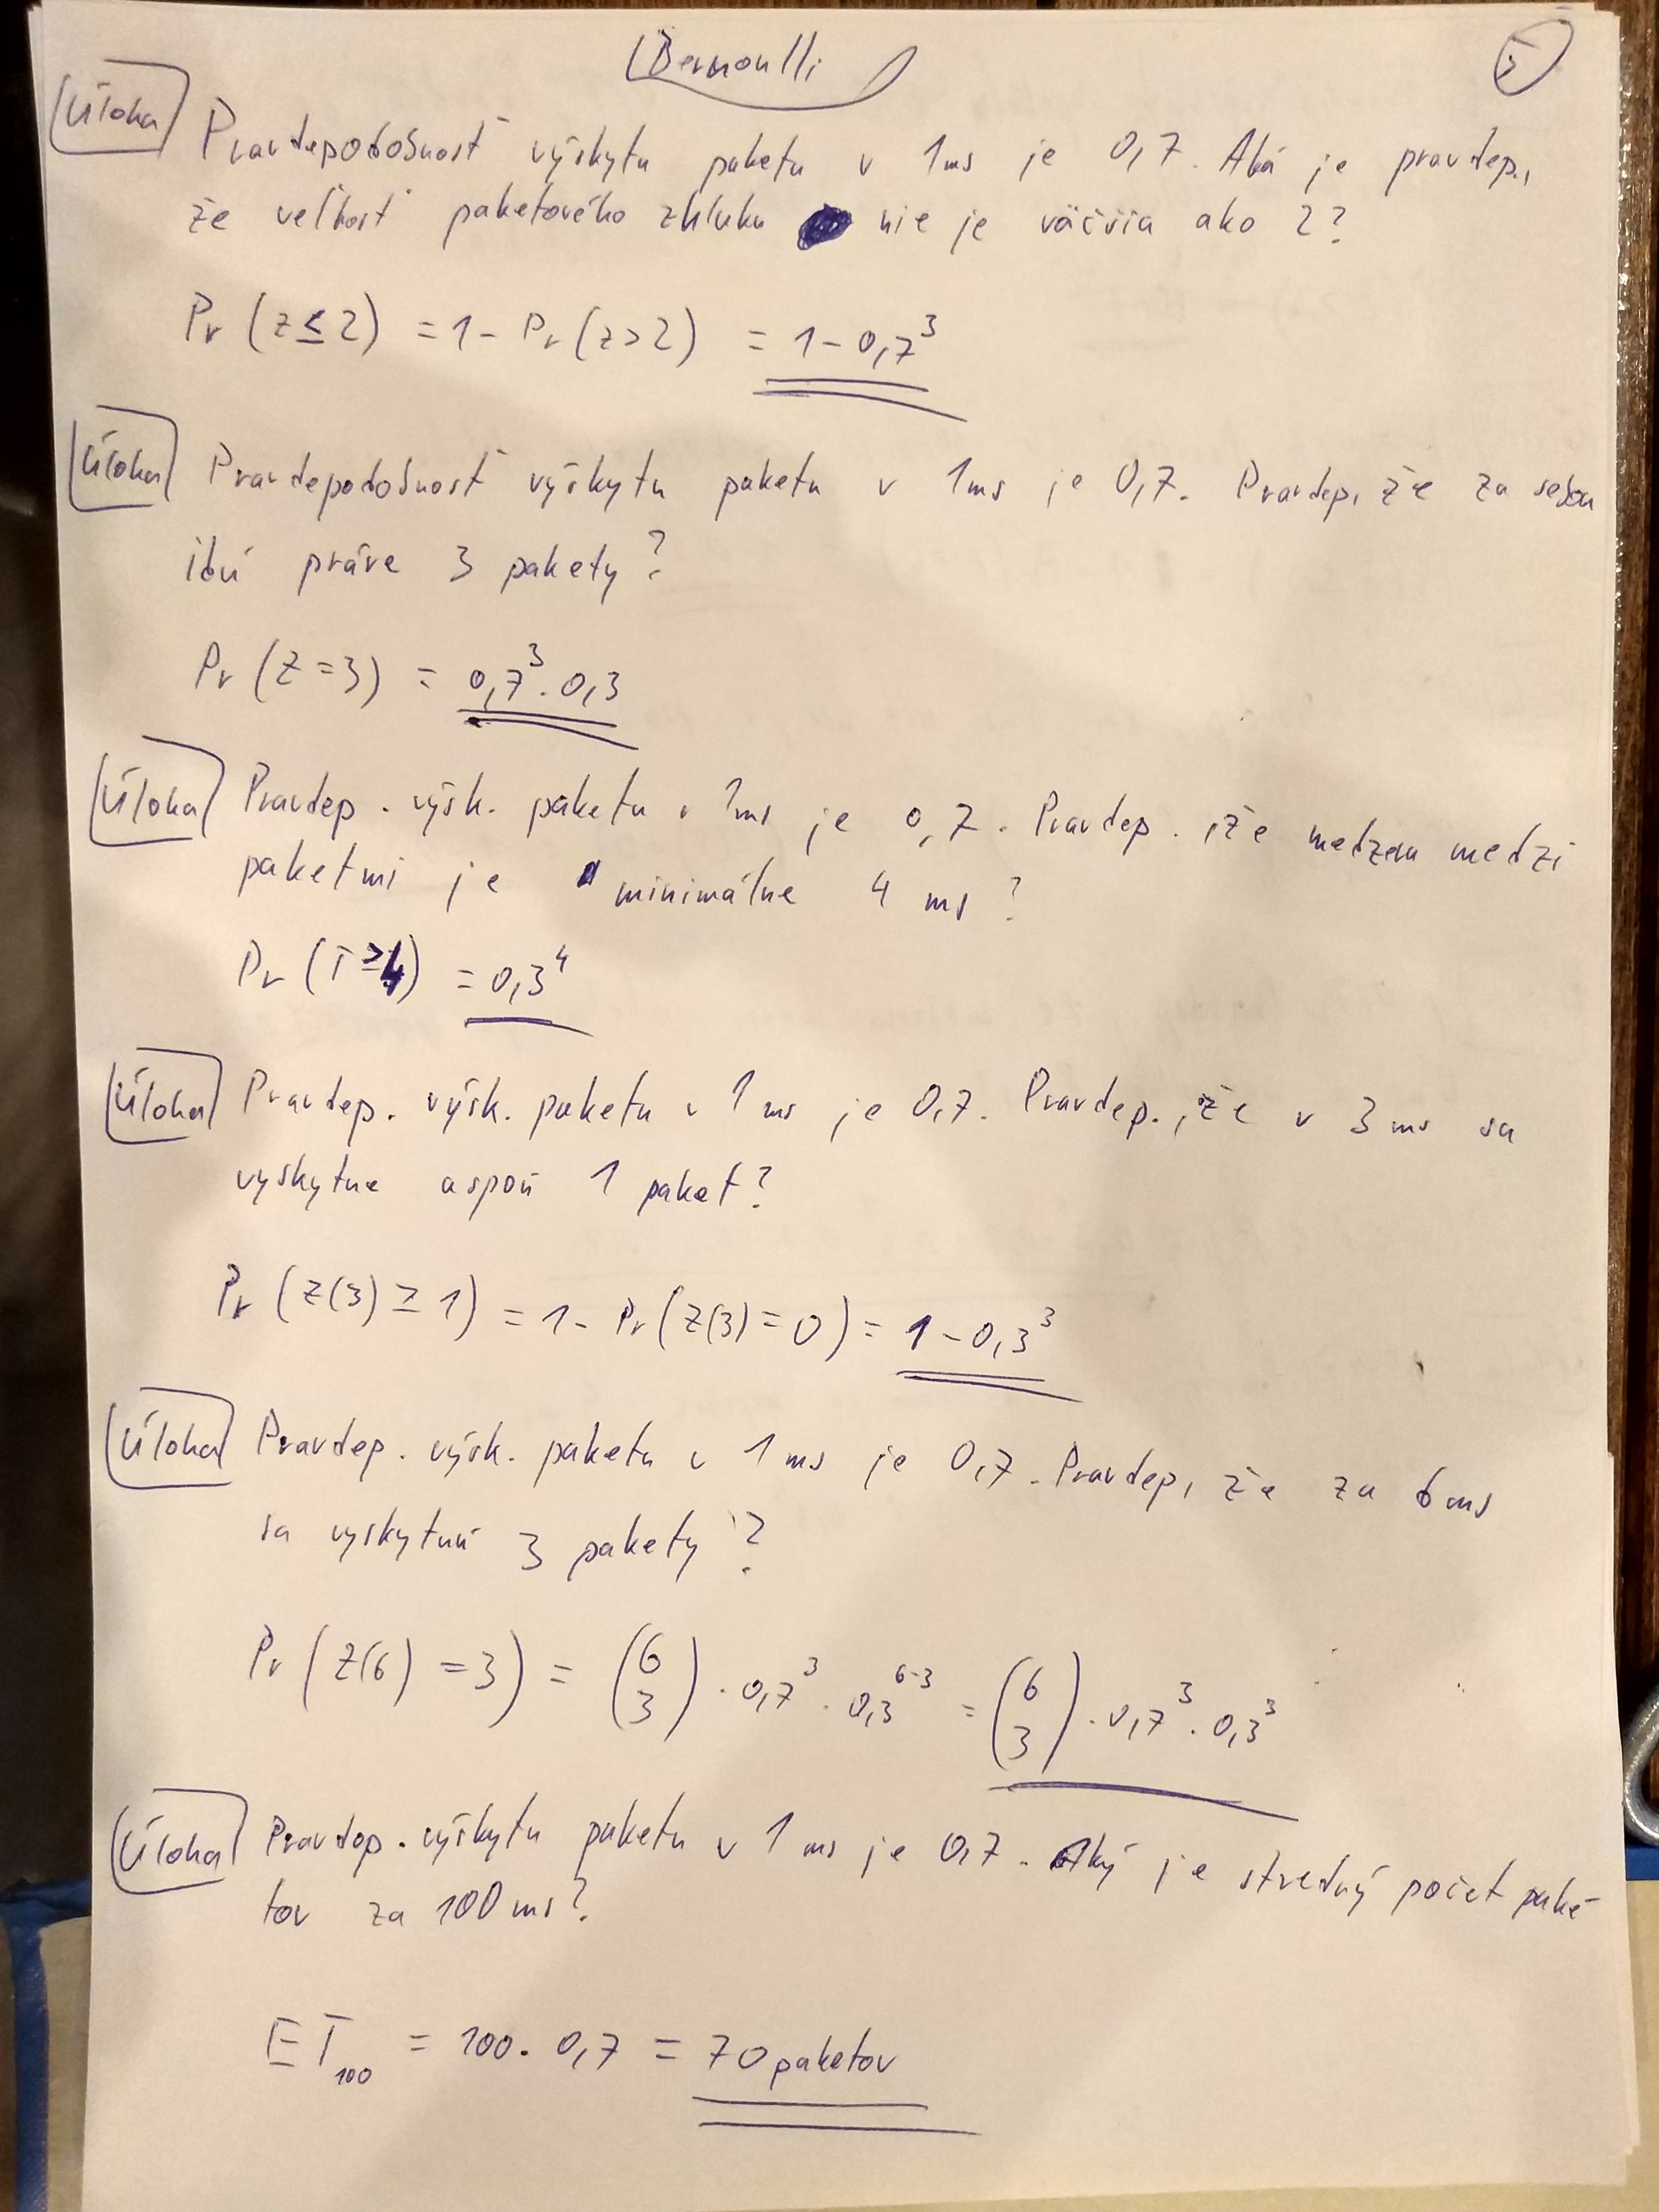 Bernoulli
5
Úloha Pravdepodobnosť výskytu paketu v 1ms je 0,7. Aká je pravdep.,
že veľkosť paketového zhluku nie je väčšia ako 2?
Pr (z ≤ 2) = 1 - Pr (z > 2) = 1 - 0,7³
Úloha Pravdepodobnosť výskytu paketu v 1ms je 0,7. Pravdep, že za sebou
idú práve 3 pakety?
Pr (z = 3) = 0,7³ . 0,3
Úloha Pravdep. výsk. paketu v 1ms je 0,7. Pravdep. , že medzera medzi
paketmi je minimálne 4 ms?
Pr (T ≥ 4) = 0,3⁴
Úloha Pravdep. výsk. paketu v 1ms je 0,7. Pravdep., že v 3 ms sa
vyskytne aspoň 1 paket?
Pr (z(3) ≥ 1) = 1 - Pr (z(3) = 0) = 1 - 0,3³
Úloha Pravdep. výsk. paketu v 1 ms je 0,7. Pravdep, že za 6 ms
sa vyskytnú 3 pakety?
Pr (z(6) = 3) = (6 3) . 0,7³ . 0,3⁶⁻³ = (6 3) . 0,7³ . 0,3³
Úloha Pravdep. výskytu paketu v 1 ms je 0,7. Aký je stredný počet pake
tov za 100 ms?
E T₁₀₀ = 100 . 0,7 = 70 paketov